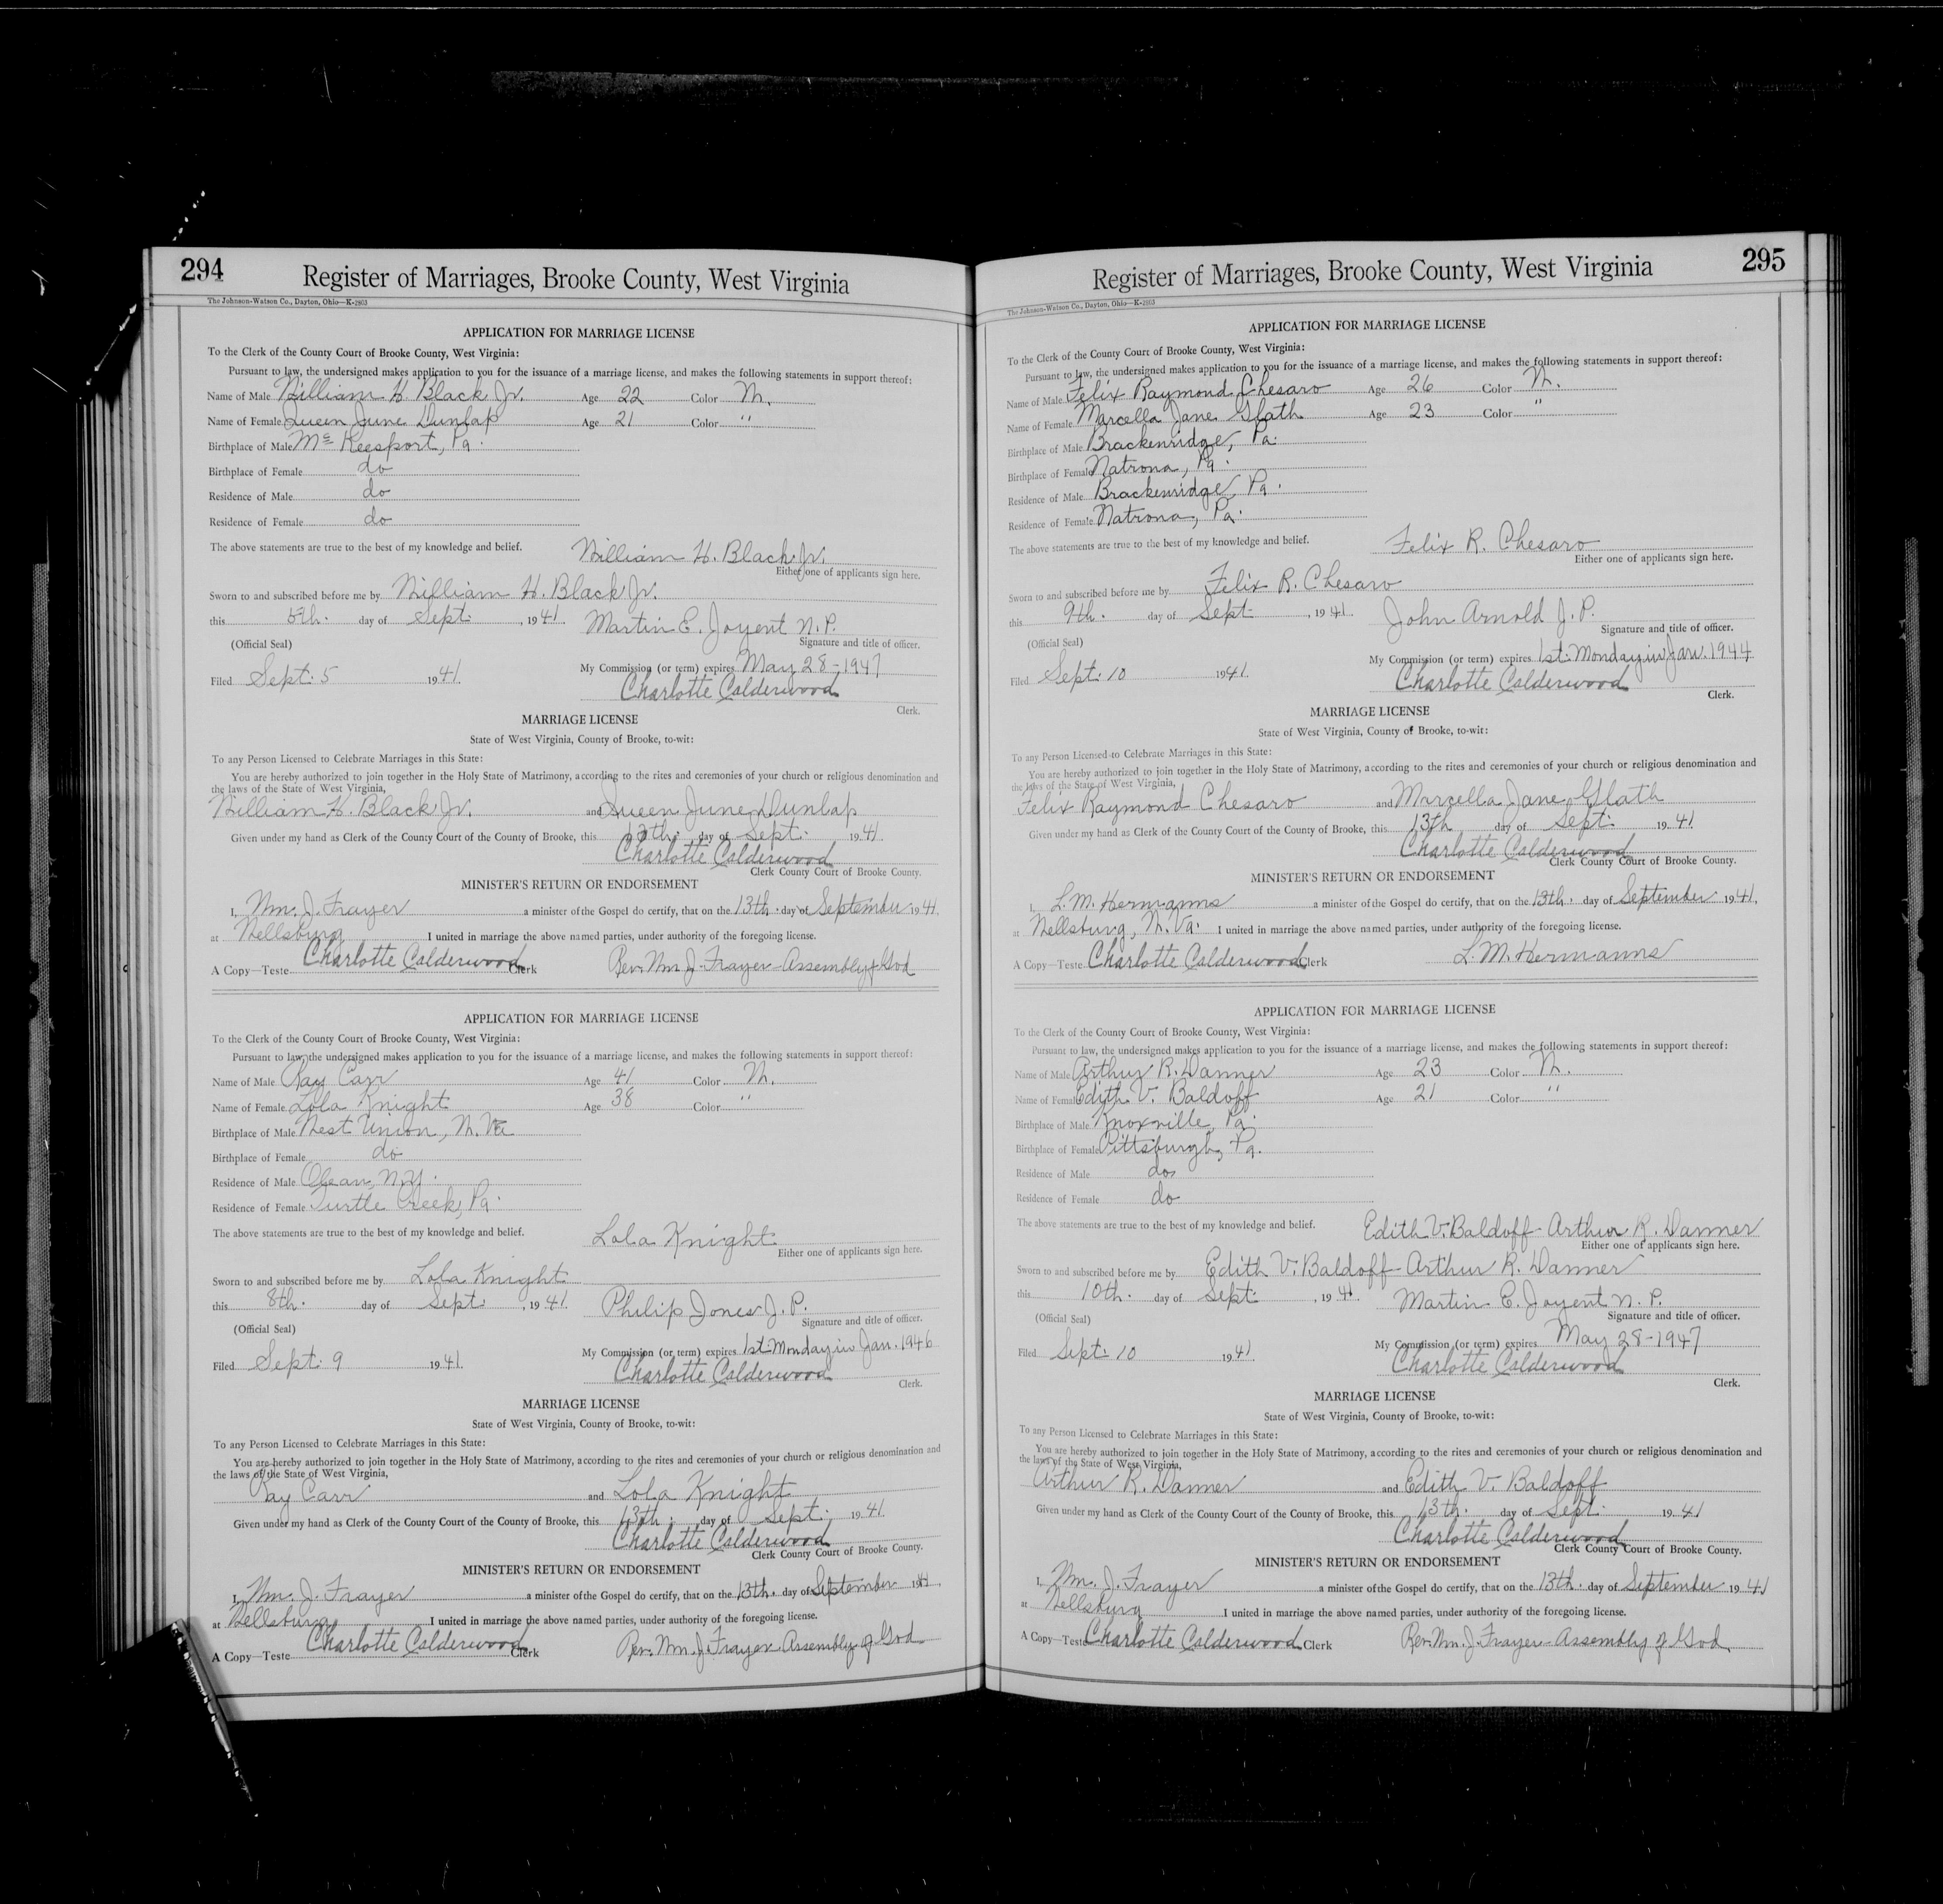 294
Register of Marriages, Brooke County, West Virginia
The Johnson-Watson Co., Dayton, Ohio—K-2803
APPLICATION FOR MARRIAGE LICENSE
To the Clerk of the County Court of Brooke County, West Virginia:
Pursuant to law, the undersigned makes application to you for the issuance of a marriage license, and makes the following statements in support thereof:
Name of Male William H. Black Jr. Age 22 Color W.
Name of Female Queen June Dunlap Age 21 Color "
Birthplace of Male McKeesport, Pa.
Birthplace of Female do
Residence of Male do
Residence of Female do
The above statements are true to the best of my knowledge and belief. William H. Black Jr.
Either one of applicants sign here.
Sworn to and subscribed before me by William H. Black Jr.
this 5th. day of Sept. , 1941. Martin E. Joyent N.P.
(Official Seal) Signature and title of officer.
My Commission (or term) expires May 28-1947
Filed Sept. 5 1941. Charlotte Calderwood
Clerk.
MARRIAGE LICENSE
State of West Virginia, County of Brooke, to-wit:
To any Person Licensed to Celebrate Marriages in this State:
You are hereby authorized to join together in the Holy State of Matrimony, according to the rites and ceremonies of your church or religious denomination and
the laws of the State of West Virginia,
William H. Black Jr. and Queen June Dunlap
Given under my hand as Clerk of the County Court of the County of Brooke, this 13th. day of Sept. 1941.
Charlotte Calderwood
Clerk County Court of Brooke County.
MINISTER'S RETURN OR ENDORSEMENT
I, Wm. J. Frayer a minister of the Gospel do certify, that on the 13th. day of September 1941.
at Wellsburg I united in marriage the above named parties, under authority of the foregoing license.
A Copy—Teste Charlotte Calderwood Clerk Rev. Wm. J. Frayer-Assembly of God
APPLICATION FOR MARRIAGE LICENSE
To the Clerk of the County Court of Brooke County, West Virginia:
Pursuant to law, the undersigned makes application to you for the issuance of a marriage license, and makes the following statements in support thereof:
Name of Male Ray Carr Age 41 Color W.
Name of Female Lola Knight Age 38 Color "
Birthplace of Male West Union, W. Va
Birthplace of Female do
Residence of Male Olean, N.Y.
Residence of Female Turtle Creek, Pa.
The above statements are true to the best of my knowledge and belief. Lola Knight
Either one of applicants sign here.
Sworn to and subscribed before me by Lola Knight
this 8th. day of Sept. , 1941. Philip Jones J. P.
(Official Seal) Signature and title of officer.
My Commission (or term) expires 1st. Monday in Jan. 1946
Filed Sept. 9 1941. Charlotte Calderwood
Clerk.
MARRIAGE LICENSE
State of West Virginia, County of Brooke, to-wit:
To any Person Licensed to Celebrate Marriages in this State:
You are hereby authorized to join together in the Holy State of Matrimony, according to the rites and ceremonies of your church or religious denomination and
the laws of the State of West Virginia,
Ray Carr and Lola Knight
Given under my hand as Clerk of the County Court of the County of Brooke, this 13th. day of Sept. 1941.
Charlotte Calderwood
Clerk County Court of Brooke County.
MINISTER'S RETURN OR ENDORSEMENT
I, Wm. J. Frayer a minister of the Gospel do certify, that on the 13th. day of September 1941.
at Wellsburg I united in marriage the above named parties, under authority of the foregoing license.
A Copy—Teste Charlotte Calderwood Clerk Rev. Wm. J. Frayer-Assembly of God
295
Register of Marriages, Brooke County, West Virginia
The Johnson-Watson Co., Dayton, Ohio—K-2803
APPLICATION FOR MARRIAGE LICENSE
To the Clerk of the County Court of Brooke County, West Virginia:
Pursuant to law, the undersigned makes application to you for the issuance of a marriage license, and makes the following statements in support thereof:
Name of Male Felix Raymond Chesaro Age 26 Color W.
Name of Female Marcella Jane Glath Age 23 Color "
Birthplace of Male Brackenridge, Pa.
Birthplace of Female Natrona, Pa.
Residence of Male Brackenridge, Pa.
Residence of Female Natrona, Pa.
The above statements are true to the best of my knowledge and belief. Felix R. Chesaro
Either one of applicants sign here.
Sworn to and subscribed before me by Felix R. Chesaro
this 9th. day of Sept. , 1941. John Arnold J. P.
(Official Seal) Signature and title of officer.
My Commission (or term) expires 1st. Monday in Jan. 1944
Filed Sept. 10 1941. Charlotte Calderwood
Clerk.
MARRIAGE LICENSE
State of West Virginia, County of Brooke, to-wit:
To any Person Licensed to Celebrate Marriages in this State:
You are hereby authorized to join together in the Holy State of Matrimony, according to the rites and ceremonies of your church or religious denomination and
the laws of the State of West Virginia,
Felix Raymond Chesaro and Marcella Jane Glath
Given under my hand as Clerk of the County Court of the County of Brooke, this 13th day of Sept. 1941.
Charlotte Calderwood
Clerk County Court of Brooke County.
MINISTER'S RETURN OR ENDORSEMENT
I, L. M. Hermanns a minister of the Gospel do certify, that on the 13th. day of September 1941.
at Wellsburg, W. Va. I united in marriage the above named parties, under authority of the foregoing license.
A Copy—Teste Charlotte Calderwood Clerk L. M. Hermanns
APPLICATION FOR MARRIAGE LICENSE
To the Clerk of the County Court of Brooke County, West Virginia:
Pursuant to law, the undersigned makes application to you for the issuance of a marriage license, and makes the following statements in support thereof:
Name of Male Arthur R. Danner Age 23 Color W.
Name of Female Edith V. Baldoff Age 21 Color "
Birthplace of Male Knoxville, Pa.
Birthplace of Female Pittsburgh, Pa.
Residence of Male do
Residence of Female do
The above statements are true to the best of my knowledge and belief. Edith V. Baldoff-Arthur R. Danner
Either one of applicants sign here.
Sworn to and subscribed before me by Edith V. Baldoff-Arthur R. Danner
this 10th. day of Sept. , 1941. Martin E. Joyent N. P.
(Official Seal) Signature and title of officer.
My Commission (or term) expires May 28-1947
Filed Sept. 10 1941. Charlotte Calderwood
Clerk.
MARRIAGE LICENSE
State of West Virginia, County of Brooke, to-wit:
To any Person Licensed to Celebrate Marriages in this State:
You are hereby authorized to join together in the Holy State of Matrimony, according to the rites and ceremonies of your church or religious denomination and
the laws of the State of West Virginia,
Arthur R. Danner and Edith V. Baldoff
Given under my hand as Clerk of the County Court of the County of Brooke, this 13th. day of Sept. 1941
Charlotte Calderwood
Clerk County Court of Brooke County.
MINISTER'S RETURN OR ENDORSEMENT
I, Wm. J. Frayer a minister of the Gospel do certify, that on the 13th. day of September 1941
at Wellsburg I united in marriage the above named parties, under authority of the foregoing license.
A Copy—Teste Charlotte Calderwood Clerk Rev. Wm. J. Frayer-Assembly of God